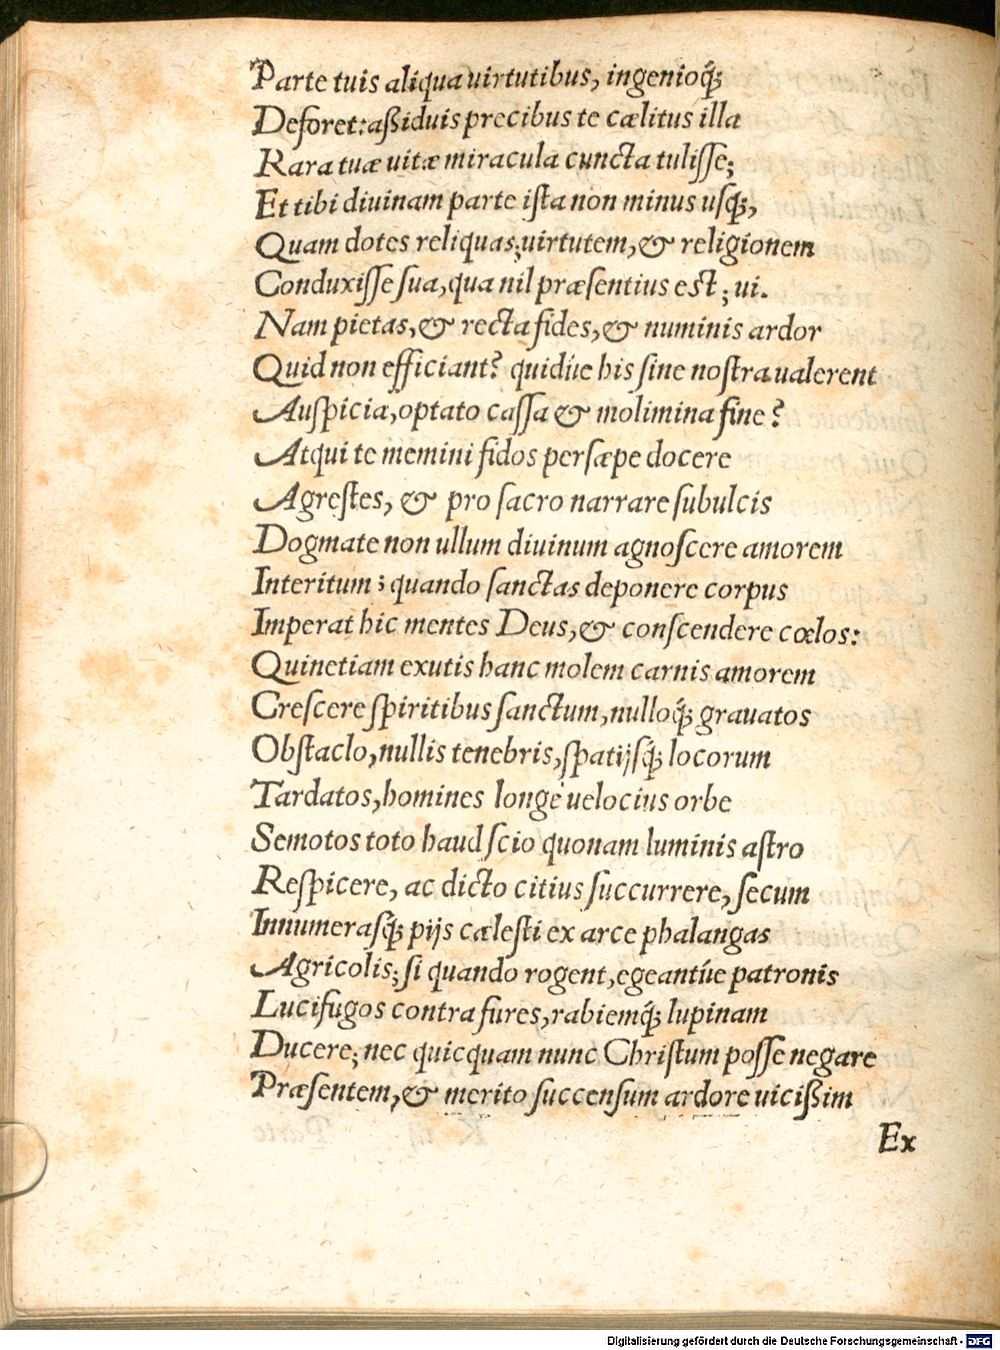 Parte tuis aliqua uirtutibus, ingenioq́;
Deforet: aßiduis precibus te cælitus illa
Rara tuæ uitæ miracula cuncta tulisse;
Et tibi diuinam parte ista non minus usq́;,
Quam dotes reliquas; uirtutem, & religionem
Conduxisse sua, qua nil præsentius est; ui.
Nam pietas, & recta fides, & numinis ardor
Quid non efficiant? quidúe his sine nostra ualerent
Auspicia, optato cassa & molimina fine?
Atqui te memini fidos persæpe docere
Agrestes, & pro sacro narrare subulcis
Dogmate non ullum diuinum agnoscere amorem
Interitum; quando sanctas deponere corpus
Imperat hic mentes Deus, & conscendere cœlos:
Quinetiam exutis hanc molem carnis amorem
Crescere spiritibus sanctum, nulloq́; grauatos
Obstaclo, nullis tenebris, spatijsq́; locorum
Tardatos, homines longè uelocius orbe
Semotos toto haud scio quonam luminis astro
Respicere, ac dicto citius succurrere, secum
Innumerasq́; pijs cælesti ex arce phalangas
Agricolis; si quando rogent, egeantúe patronis
Lucifugos contra fures, rabiemq́; lupinam
Ducere; nec quicquam nunc Christum posse negare
Præsentem, & merito succensum ardore uicißim
Ex
Digitalisierung gefördert durch die Deutsche Forschungsgemeinschaft - DFG